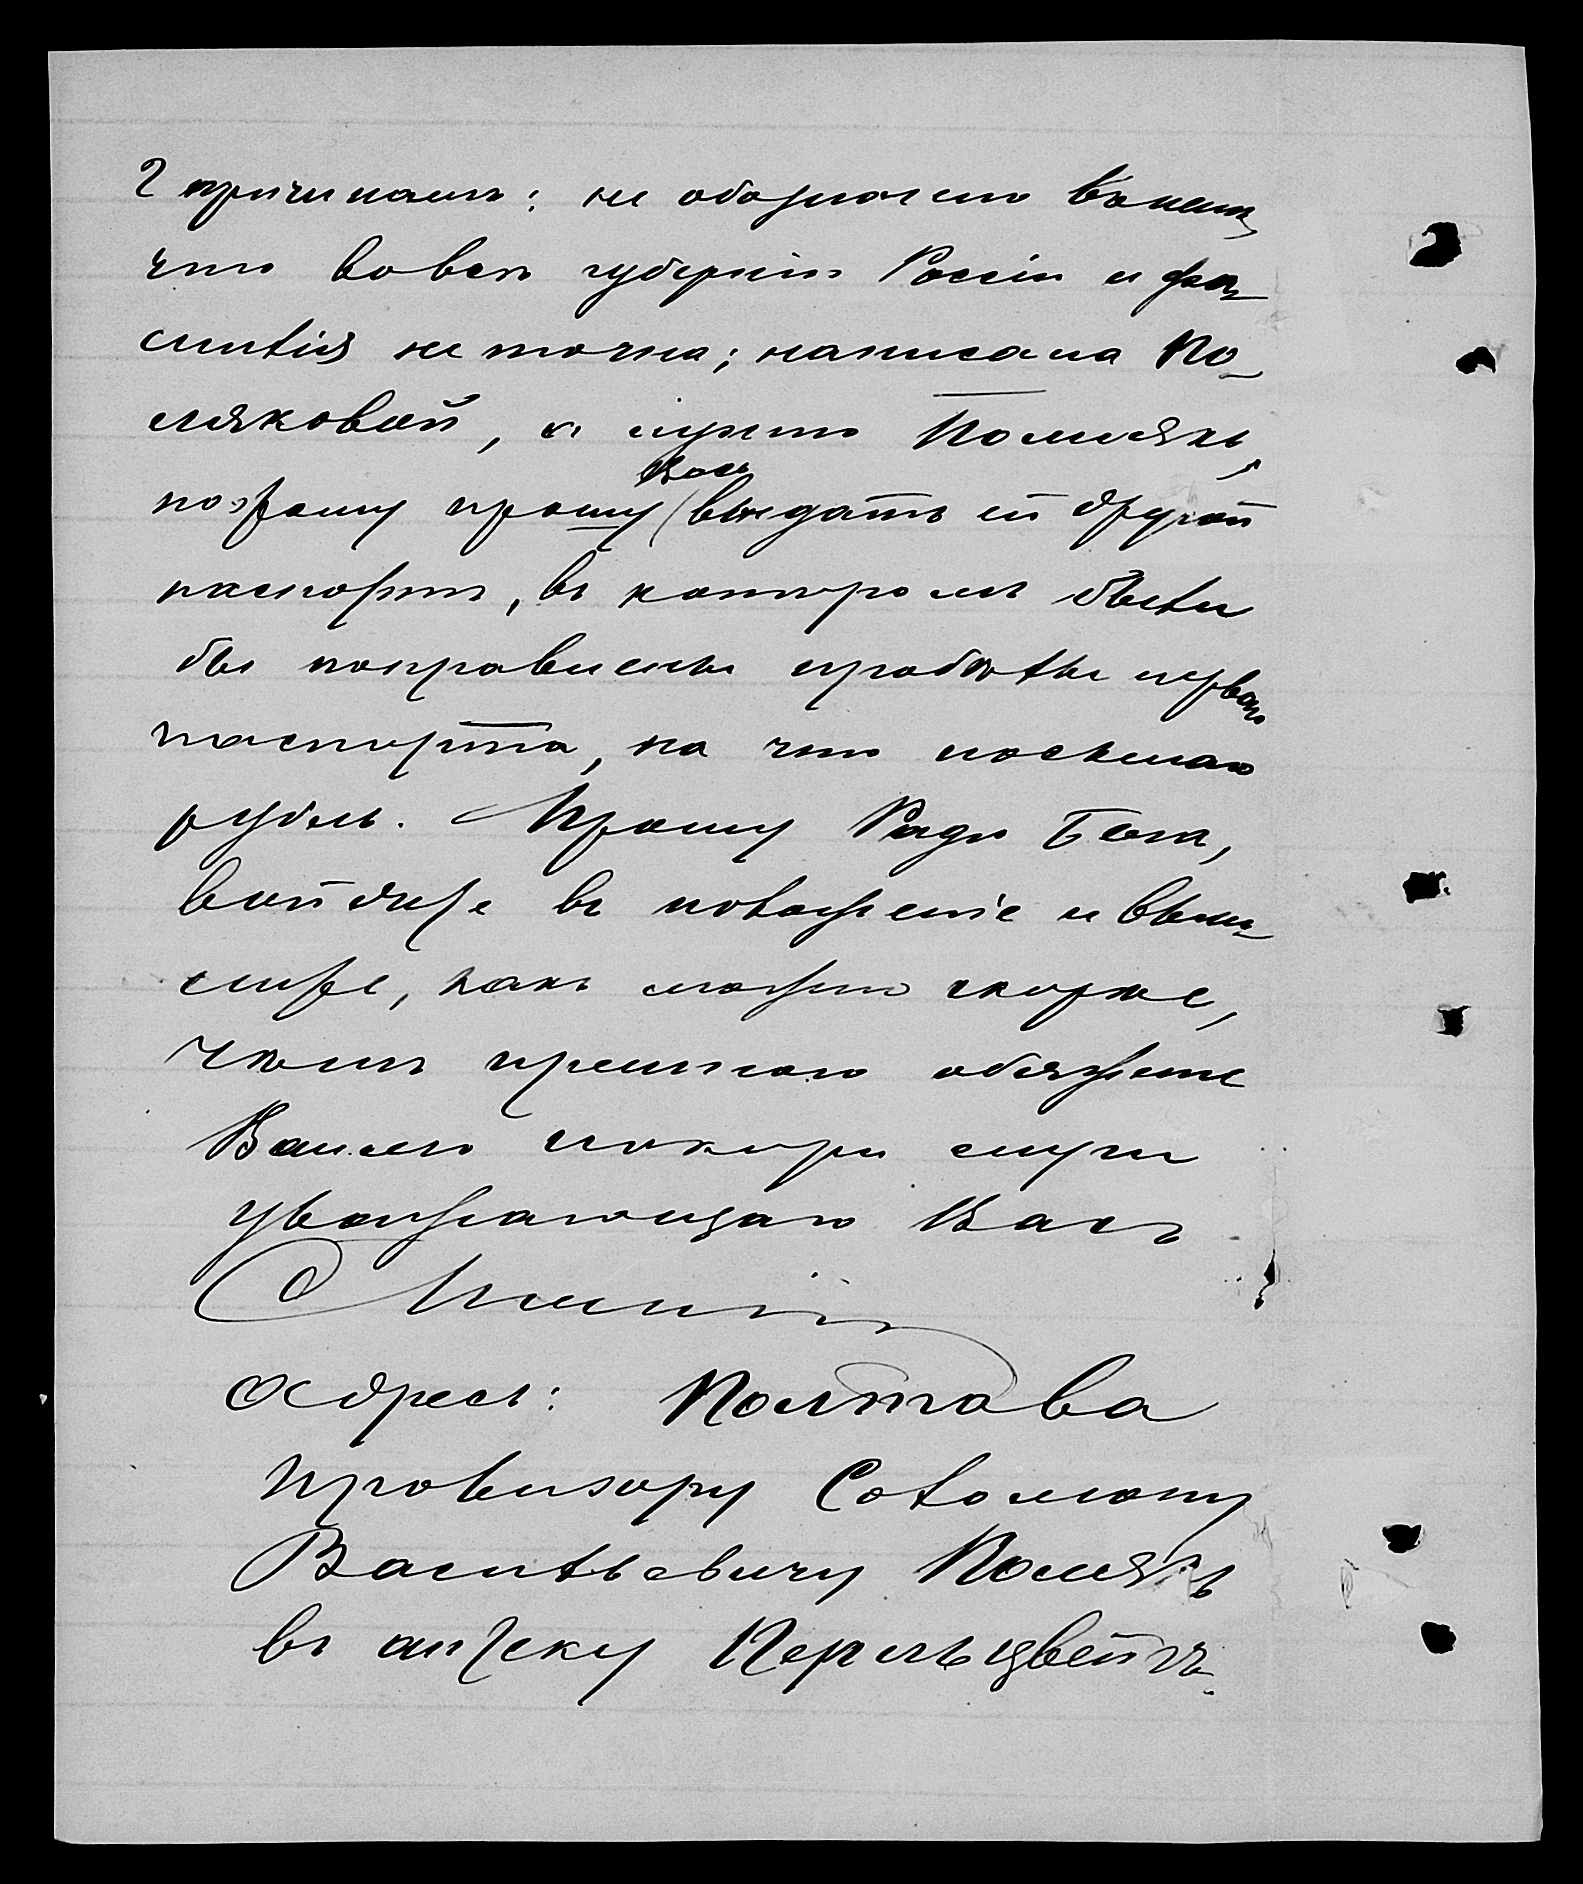 2 причинамъ: не обозначено въ немъ,
что во всѣ губерніи Россіи и фа-
милія не точна; написана По-
ляковой, а нужно Полякъ,
поэтому прошу Васъ выдать ей другой
паспортъ, въ которомъ были
бы поправлены пробѣлы перваго
паспорта, на что посылаю
рубль. Прошу Ради Бога,
войдите въ положеніе и вы-
шлите, какъ можно скорѣе,
чѣмъ премного обяжете
Вашего покорн слуги
уважающаго Васъ
Адресъ: Полтава
Провизору Соломону
Васильевичу Полякъ
въ аптеку Перльцвейгъ.